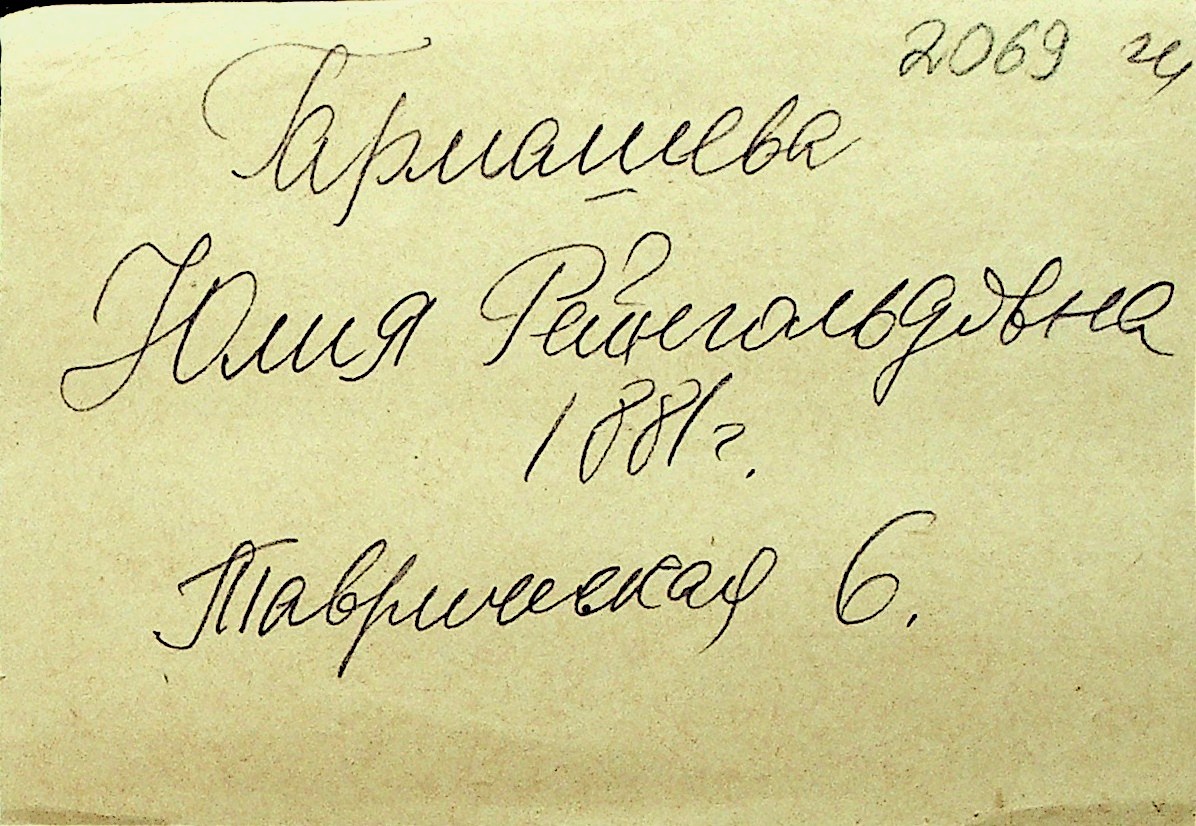 2069
Гармашева
Юлия Рейнгольдовна
1881г.
Таврическая 6.